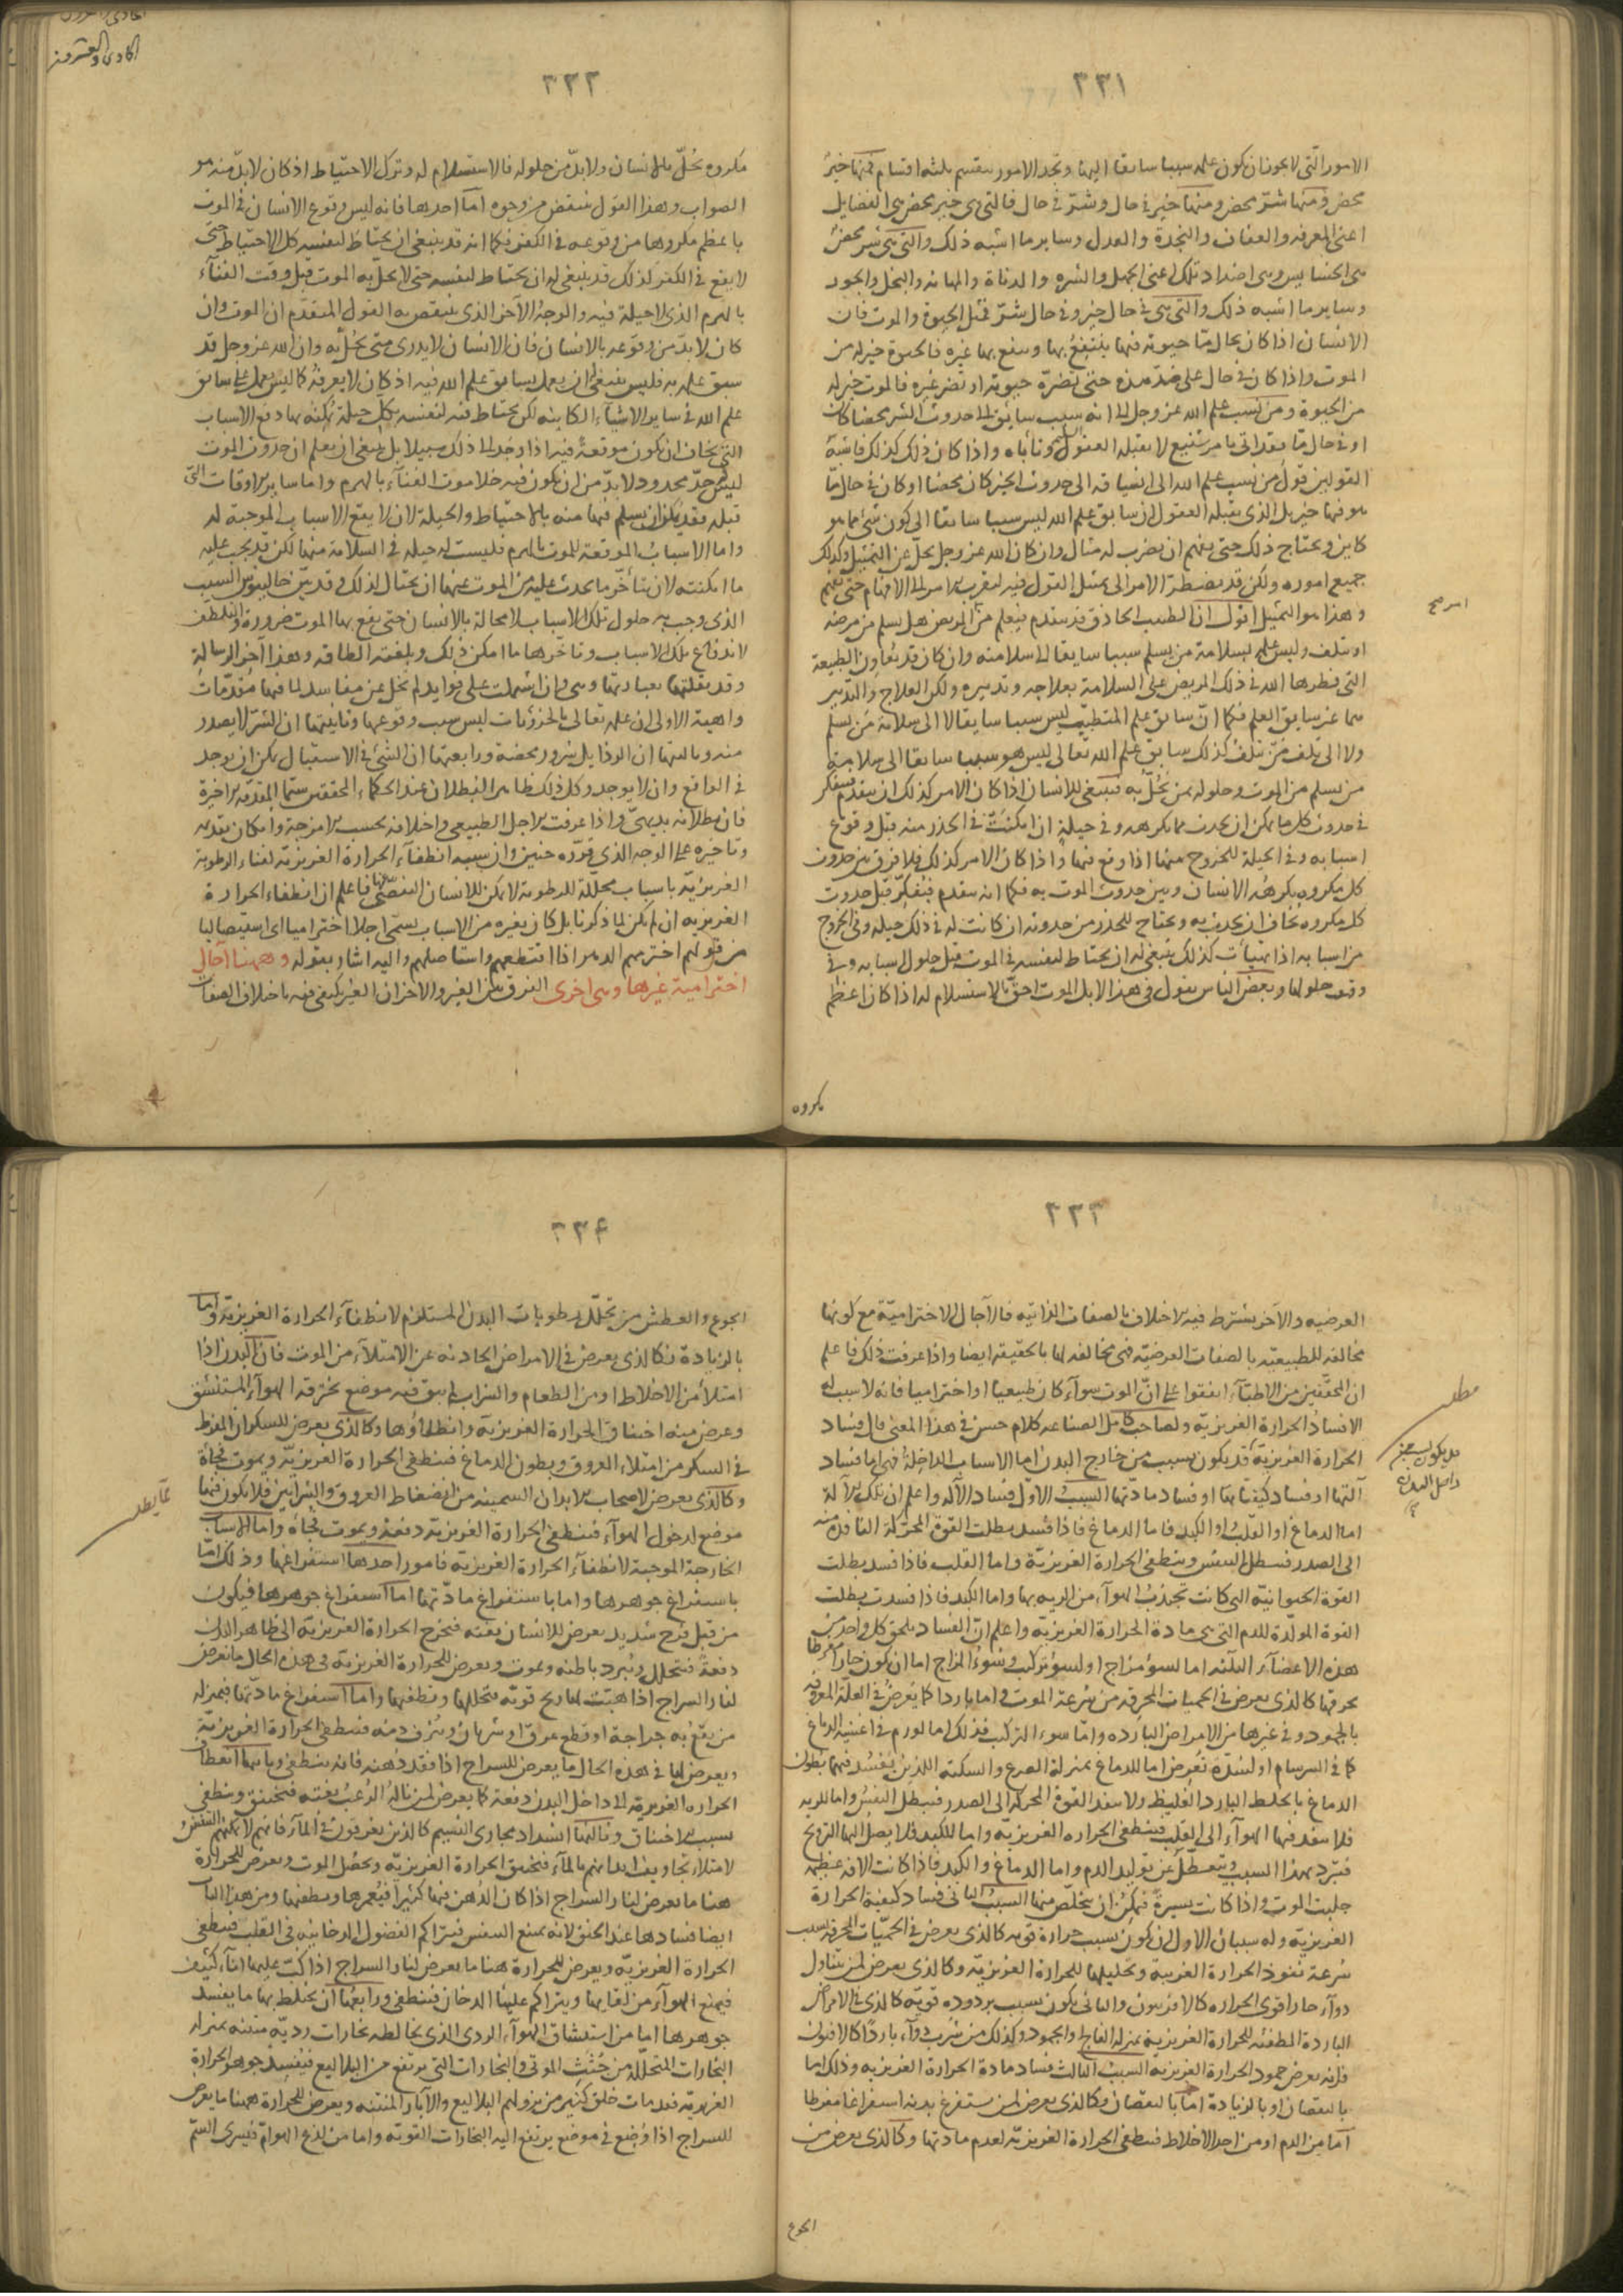 ٣٣١
الامور التى لا يجوز ان يكون علمه سببا سابقا اليها ونجد الامور ينقسم ثلثة اقسام فمنها خير
محض ومنها شر محض ومنها خير فى حال وشر فى حال فالتى هى خير محض هى الفضايل
اعنى المعرفة والعفاف والنجدة والعدل وساير ما اشبه ذلك والتى هى شر محض
هى الخسايس وهى اضداد تلك اعنى الجهل والشره والدناة والمهانه والبخل والجور
وساير ما اشبه ذلك والتى هى فى حال خير وفى حال شر فمثل الحيوة والموت فان
الانسان اذا كان بحال ما حيوته فيها ينتفع بها وينفع بها غيره فالحيوة خير له من
الموت واذا كان فى حال على ضد هذه حتى تضره حيوته او تضر غيره فالموت خير له
من الحيوة ومن نسب علم الله عز وجل الى انه سبب سابق الى حدوث الشر محضا كان
او فى حال ما فقد اتى بامر شنيع لا يقبله العقول وتأباه واذا كان ذلك كذلك فاشبه
القولين قول من نسب علم الله الى انسياقه الى حدوث الخير كان محضا او كان فى حال ما
هو فيها خير بل الذى يقبله العقول ان سابق علم الله ليس سببا سابقا الى كون شئ مما هو
كاين ونحتاج ذلك حتى يفهم ان يضرب له مثال وان كان الله عز وجل يجل عن التمثيل وكذلك
جميع اموره ولكن قد يضطر الامر الى تمثيل القول فيه ليقرب الامر الى الافهام حتى يفهم
وهذا هو التمثيل اقول ان الطبيب الحاذق قد يتقدم فيعلم من المريض هل يسلم من مرضه
او يتلف وليس علمه بسلامة من يسلم سببا سابقا الى سلامته وان كان قد يعاون الطبيعة
التى فطرها الله فى ذلك المريض على السلامة بعلاجه وتدبيره ولكن العلاج والتدبير
هما غير سابق العلم فكما ان سابق علم المتطبب ليس سببا سابقا لا الى سلامة من يسلم
ولا الى تلف من تلف كذلك سابق علم الله تعالى ليس هو سببا سابقا الى سلامة
من يسلم من الموت وحلوله بمن يحل به فينبغى للانسان اذا كان الامر كذلك ان يتقدم فيفكر
فى حدوث كل ما يمكن ان يحدث مما يكرهه وفى حيلة ان امكنت فى الحذر منه قبل وقوع
اسبابه وفى الحيلة للخروج منها اذا وقع فيها واذا كان الامر كذلك فلا فرق بين حدوث
كل مكروه يكرهه الانسان وبين حدوث الموت به فكما انه يتقدم فيفكر قبل حدوث
كل مكروه يخاف ان يحدث به ويحتاج للحذر من حدوثه ان كانت له فى ذلك حيلة وفى الخروج
من اسبابه اذا تهيأت كذلك ينبغى له ان يحتاط لنفسه فى الموت قبل حلول اسبابه وفى
وقت حلولها وبعض الناس يقول فى هذا لا بل الموت احق بالاستسلام له اذا كان اعظم
مكروه
٣٣٢
مكروه يحل بالانسان ولا بد من حلوله فالاستسلام له وترك الاحتياط اذ كان لا بد منه هو
الصواب وهذا القول ينتقض من وجوه اما احدها فانه ليس وقوع الانسان فى الموت
باعظم مكروها من وقوعه فى الكفر فكما انه قد ينبغى ان يحتاط لنفسه كل الاحتياط حتى
لا يقع فى الكفر كذلك قد ينبغى له ان يحتاط لنفسه حتى لا يحل به الموت قبل وقت الفناء
بالهرم الذى لا حيلة فيه والوجه الآخر الذى ينتقض به القول المتقدم ان الموت وان
كان لا بد من وقوعه بالانسان فان الانسان لا يدرى متى يحل به وان الله عز وجل قد
سبق علمه به فليس ينبغى ان يعمل بسابق علم الله فيه اذ كان لا يعرفه كما ليس يعمل على سابق
علم الله فى ساير الاشياء الكاينة لكن يحتاط فيه لنفسه بكل حيلة تمكنه بها دفع الاسباب
التى يخاف ان يكون موقعة فيه اذا وجد الى ذلك سبيلا بل ينبغى ان يعلم ان حدوث الموت
ليس له حد محدود لا بد من ان يكون فيه خلا موت الفناء بالهرم واما ساير الاوقات التى
قبله فقد يمكن ان يسلم فيها منه بالاحتياط والحيلة لان لا يقع الاسباب الموجبة له
واما الاسباب الموقعة للموت بالهرم فليست له حيلة فى السلامة منها لكن قد يجب عليه
ما امكنته لان يتأخر ما يحدث عليه من الموت عنها ان يحتال لذلك وقد بين جالينوس السبب
الذى وجب به حلول تلك الاسباب لا محالة بالانسان حتى يقع بها الموت ضرورة والتلطف
لاندفاع تلك الاسباب وتأخرها ما امكن ذلك وبلغته الطاقة وهذا آخر الرسالة
وقد نقلتها بعبارتها وهى وان اشتملت على فوايد لم تخل عن مفاسد لما فيها مقدمات
واهية الاولى ان علمه تعالى بالجزؤيات ليس سبب وقوعها وثانيتها ان الشر لا يصدر
منه وثالثتها ان الرذايل شرور محضة ورابعتها ان الشئ فى الاستقبال يمكن ان يوجد
فى الواقع وان لا يوجد وكل ذلك ظاهر البطلان عند الحكماء المحققين سيما المقدمة الاخيرة
فان بطلانه بديهى واذا عرفت الاجل الطبيعى واختلافه بحسب الامزجة وامكان تقديمه
وتأخيره على الوجه الذى قرره حنين وان سببه انطفاء الحرارة الغريزية لفناء الرطوبة
الغريزية باسباب محللة للرطوبة لا يمكن للانسان التفصى عنها فاعلم ان انطفاء الحرارة
الغريزية ان لم يكن لما ذكرنا بل كان بغيره من الاسباب يسمى اجلا اختراميا اى استيصاليا
من قولهم اخترمهم الدهر اذا اقتطعهم واستأصلهم واليه اشار بقوله وههنا آجال
اخترامية غيرها وهى اخرى الفرق بين الغير والآخر ان الغير يكفى فيه بالاختلاف الصفات
٣٣٣
العرضيه والآخر يشترط فيه الاختلاف بالصفات الذاتيه فالآجال الاخترامية مع كونها
مخالفة للطبيعية بالصفات العرضية فهى مخالفة لها بالحقيقة ايضا واذا عرفت ذلك فاعلم
ان المحققين من الاطباء اتفقوا على ان الموت سواء كان طبيعيا او اختراميا فانه لا سبب له
الا فساد الحرارة الغريزية ولصاحب كامل الصناعه كلام حسن فى هذا المعنى قال فساد
الحرارة الغريزية قد يكون بسبب من خارج البدن اما الاسباب الداخلة فهى اما فساد
آلتها او فساد كيفيتها او فساد مادتها السبب الاول فساد الآلة واعلم ان تلك الآلة
اما الدماغ او القلب او الكبد فاما الدماغ فاذا فسد بطلت القوة المحركة النافذة منه
الى الصدر فبطل التنفس وينطفى الحرارة الغريزية واما القلب فاذا فسد بطلت
القوة الحيوانية التى كانت تجذب الهواء من الريه بها واما الكبد فاذا فسدت بطلت
القوة المولدة للدم التى هى مادة الحرارة الغريزية واعلم ان الفساد يلحق كل واحد من
هذه الاعضاء الثلثة اما لسوء مزاج او لسوء تركيب وسوء المزاج اما ان يكون حارا مفرطا
يحرقها كالذى يعرض فى الحميات المحرقة من سرعة الموت واما باردا كما يعرض فى العلة المعروفة
بالجمود وفى غيرها من الامراض البارده واما سوء التركيب فذلك اما لورم فى اغشية الدماغ
كما فى السرسام او لسدة تعرض اما للدماغ بمنزلة الصرع والسكته اللذين يفسد فيهما بطون
الدماغ بالخلط البارد الغليظ ولا ينفذ القوة المحركة الى الصدر فيبطل التنفس واما للريه
فلا ينفذ فيها الهواء الى القلب فينطفى الحراره الغريزية واما للكبد فلا يصل اليها الترويح
فتبرد بهذا السبب ويتعطل عن توليد الدم واما الدماغ والكبد فاذا كانت الآفة عظيمه
جلبت الموت واذا كانت يسيرة فيمكن ان يتخلص منها السبب الثانى فساد كيفية الحرارة
الغريزية وله سببان الاول ان يكون بسبب حرارة قوية كالذى يعرض فى الحميات المحرقة بسبب
سرعة نفوذ الحرارة الغريبة وتحليلها للحرارة الغريزية وكالذى يعرض لمن يتناول
دواء حارا قوى الحراره كالافربيون والثانى يكون بسبب برودة قوية كالذى فى الامراض
الباردة المطفئة للحرارة الغريزية بمنزلة الفالج والجمود وكذلك من شرب دواء باردا كالافيون
فانه يعرض جمود الحرارة الغريزيه السبب الثالث فساد مادة الحرارة الغريزيه وذلك اما
بالنقصان او بالزيادة اما بالنقصان فكالذى يعرض لمن يستفرغ بدنه استفراغا مفرطا
اما من الدم او من احد الاخلاط فينطفى الحرارة الغريزية لعدم مادتها وكالذى يعرض من
الجوع
٣٣٤
الجوع والعطش من تحلل رطوبات البدن المستلزم لانطفاء الحرارة الغريزية واما
بالزيادة فكالذى يعرض فى الامراض الحادثه عن الامتلاء من الموت فان البدن اذا
امتلأ من الاخلاط او من الطعام والشراب لم يبق فيه موضع يخرقه الهواء المستنشق
وعرض منه اختناق الحرارة الغريزية وانطفاؤها وكالذى يعرض للسكران المفرط
فى السكر من امتلاء العروق وبطون الدماغ فينطفى الحرارة الغريزية ويموت فجاة
وكالذى يعرض لاصحاب الابدان السمينه من انضغاط العروق والشرايين فلا يكون فيها
موضع لدخول الهواء فينطفى الحرارة الغريزية دفعة ويموت فجاة واما الاسباب
الخارجة الموجبة لانطفاء الحرارة الغريزية فامور احدها استفراغها وذلك اما
باستفراغ جوهرها واما باستفراغ مادتها اما استفراغ جوهرها فيكون
من قبل فرح شديد يعرض للانسان بغته فيخرج الحرارة الغريزية الى ظاهر البدن
دفعة فيتحلل ويبرد باطنه ويموت ويعرض للحرارة الغريزية فى هذه الحال ما يعرض
لنار السراج اذا هبت لها ريح قوية فتحللها وتطفيها واما استفراغ مادتها فبمنزلة
من يقع به جراحة او قطع عرق او شريان وينزف دمه فينطفى الحرارة الغريزية
ويعرض لها فى هذه الحال ما يعرض للسراج اذا فقد دهنه فانه ينطفى وثانيها انعطاف
الحراره الغريزية الى داخل البدن دفعة كما يعرض لمن ناله الرعب بغته فيختنق وينطفى
بسبب الاختناق وثالثها انسداد مجارى التنسيم كالذين يغرقون فى الماء فانهم لا يمكنهم التنفس
لامتلاء تجاويف ابدانهم بالماء فيختنق الحرارة الغريزيه ويحصل الموت ويعرض للحرارة
هنا ما يعرض لنار السراج اذا كان الدهن فيها كثيرا فيغمرها ويطفيها ومن هذا الباب
ايضا فسادها عند الخنق لانه يمنع التنفس فيتراكم الفضول الدخانيه فى القلب فينطفى
الحرارة الغريزية ويعرض للحرارة هنا ما يعرض لنار السراج اذا كبت عليها اناء كثيف
فيمنع الهواء من لقايها ويتراكم عليها الدخان فينطفى ورابعها ان يختلط بها ما يفسد
جوهرها اما من استنشاق الهواء الردى الذى يخالطه بخارات ردية منتنه بمنزلة
البخارات المتحللة من جثث الموتى والبخارات التى يرتفع من البلاليع فيفسد جوهر الحرارة
الغريزية فقد مات خلق كثير من نزولهم البلاليع والآبار المنتنه ويعرض للحرارة ههنا ما يعرض
للسراج اذا وضع فى موضع يرتفع اليه البخارات القوية واما من لذع الهوام فيسرى السم